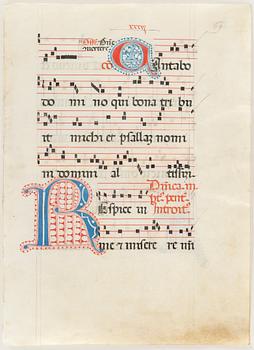 xxxx
co Cantabo
do mi no qui bona tri bu
it michi et psallaz nomi
ni domini al tissimi
Dnica in
pent
Introit
Respice in
me et misere re mi